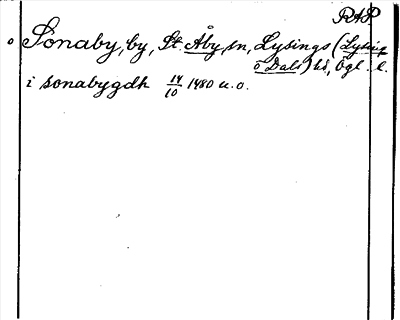 RAP
o Sonaby, by, St. Åby, sn, Lysings (Lysing
o Dals) hd, Ögl. l.
i sonabygdh 14/10 1480 u.o.